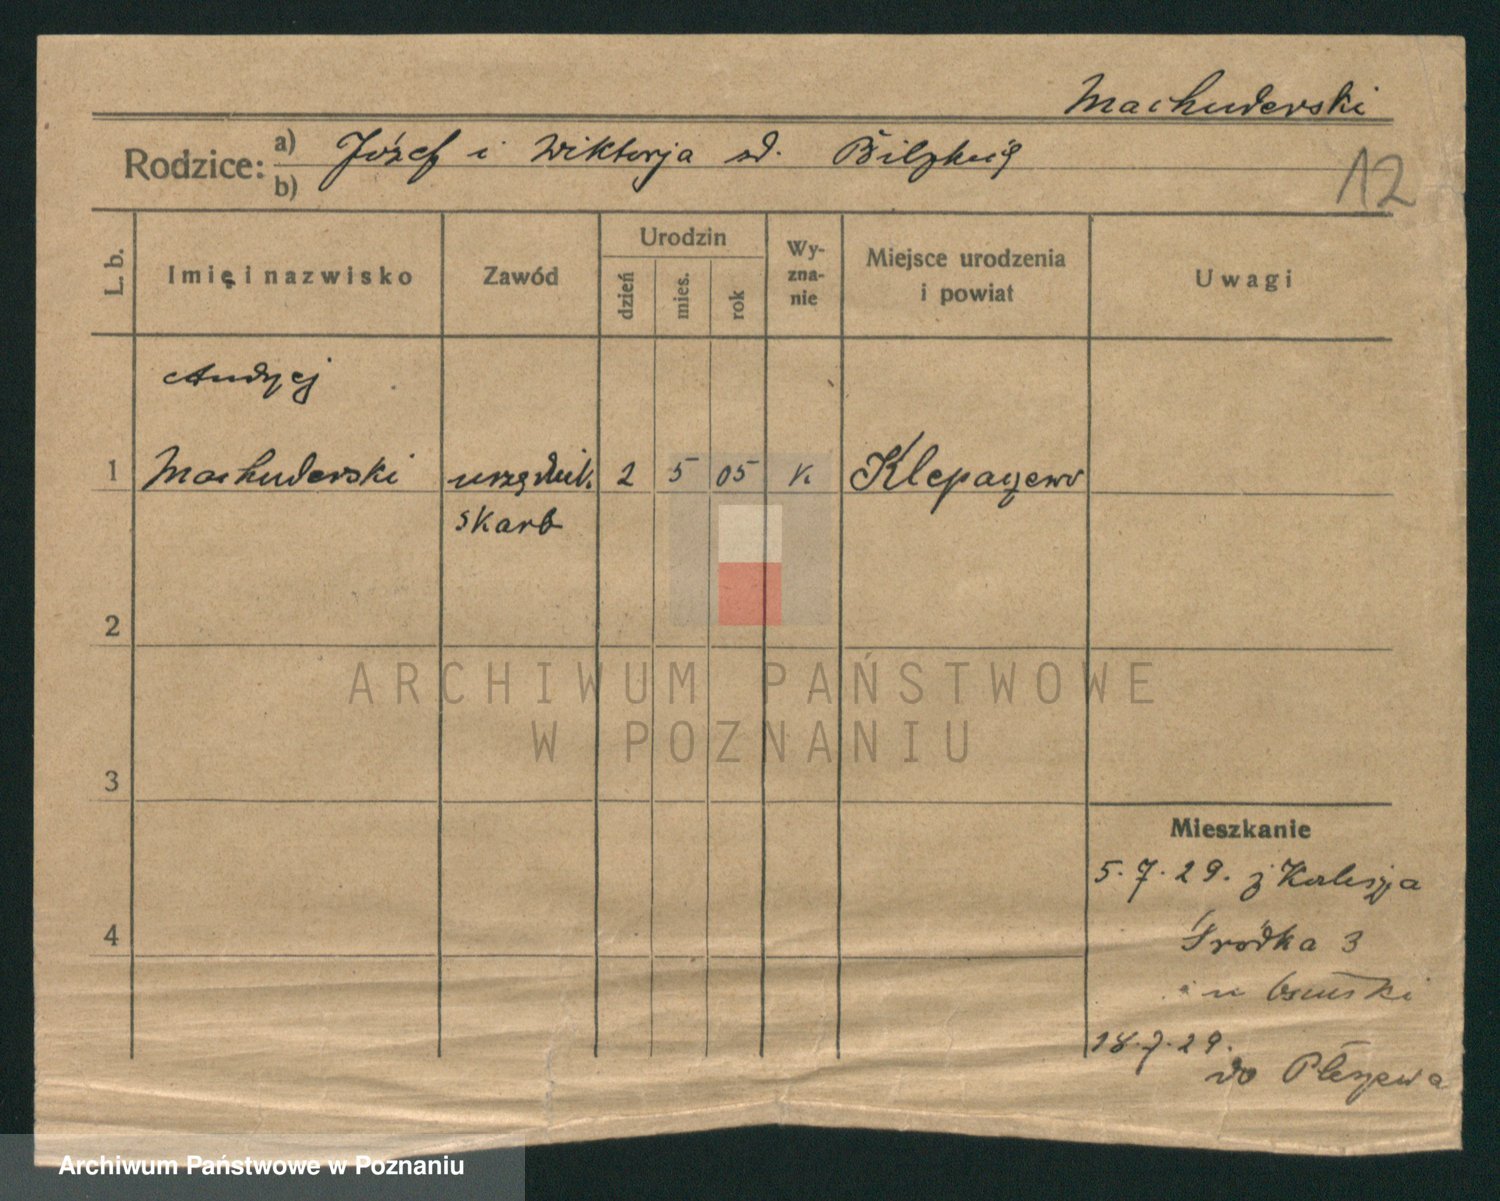 Machuderski
12
Rodzice: a) Józef i Wiktorja zd.
b)
L. b.
Imię i nazwisko
Zawód
Urodzin
dzień
mies.
rok
Wy-
zna-
nie
Miejsce urodzenia
i powiat
Uwagi
Andrzej
1 Machuderski urzędnik. 2 5 05 K Klepaczewo
skarb
2
3
4
Mieszkanie
5.7.29. z Kalisza
Śródka 3
u
18.7.29.
do Pleszewa
ARCHIWUM PAŃSTWOWE
W POZNANIU
Archiwum Państwowe w Poznaniu